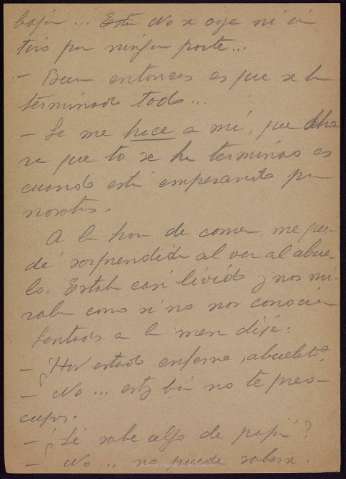 bajar... No se oye ni un
tiro por ninguna parte...
- Bien entonces es que se ha
terminado todo...
- Se me hace a mí, que aho
ra que to se ha terminao es
cuando está empezando pa
nosotros.
A la hora de comer, me que
dé sorprendido al ver al abue
lo. Estaba casi lívido y nos mi
raba como si no nos conociera
Sentado a la mesa dije:
- ¿Has estado enfermo, abuelo?
- No... estoy bien no te preo-
cupes.
- ¿Se sabe algo de papá?
- No... no puede saberse.